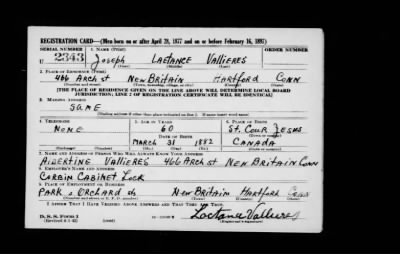 REGISTRATION CARD—(Men born on or after April 28, 1877 and on or before February 16, 1897)
SERIAL NUMBER 1. NAME (Print) ORDER NUMBER
U 2343 Joseph LACTANCE VALLIERES
(First) (Middle) (Last)
2. PLACE OF RESIDENCE (Print)
466 Arch st NEW BRITAIN HARTFORD CONN
[THE PLACE OF RESIDENCE GIVEN ON THE LINE ABOVE WILL DETERMINE LOCAL BOARD
JURISDICTION; LINE 2 OF REGISTRATION CERTIFICATE WILL BE IDENTICAL]
3. MAILING ADDRESS
SAME
4. TELEPHONE 5. AGE IN YEARS 6. PLACE OF BIRTH
NONE 60 ST. COEUR JESUS
DATE OF BIRTH
MARCH 31 1882 CANADA
7. NAME AND ADDRESS OF PERSON WHO WILL ALWAYS KNOW YOUR ADDRESS
ALBERTINE VALLIERES 466 ARCH ST NEW BRITAIN CONN
8. EMPLOYER'S NAME AND ADDRESS
CORBIN CABINET LOCK
9. PLACE OF EMPLOYMENT OR BUSINESS
PARK & ORCHARD sts NEW BRITAIN HARTFORD CONN
I AFFIRM THAT I HAVE VERIFIED ABOVE ANSWERS AND THAT THEY ARE TRUE.
D. S. S. Form 1
Lactance Vallieres